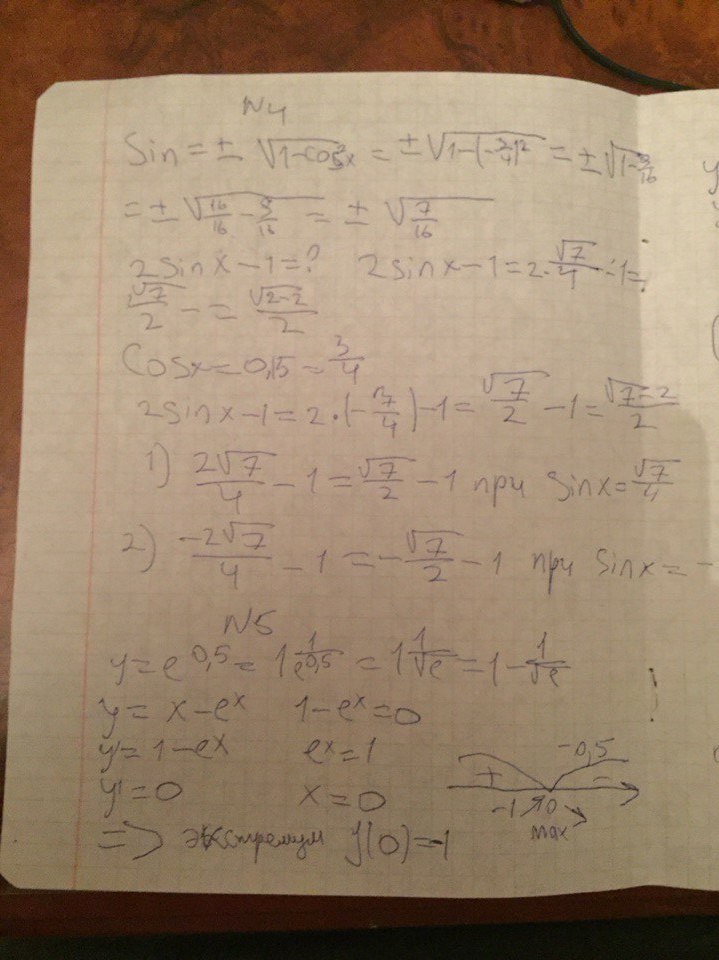 N4
Sin = ± √(1-cos²x) = ± √(1-(-3/4)²) = ± √(1-9/16)
= ± √(16/16 - 9/16) = ± √(7/16)
2sinx-1=? 2sinx-1=2·√7/4-1=
√7/2 - = √2-2/2
Cosx=0,15=3/4
2sinx-1=2·(-√7/4)-1=√7/2-1=√7-2/2
1) 2√7/4 - 1 = √7/2 - 1 при sinx=√7/4
2) -2√7/4 - 1 = -√7/2 - 1 при sinx = -
N5
y=e^0,5 = 1 1/e^0,5 = 1 1/√e = 1 - 1/√e
y=x-e^x 1-e^x=0
y'=1-e^x e^x=1
y'=0 x=0
+ -0,5 -
-1 ↗ 0 ↘
max
=> экстремум y(0)=-1